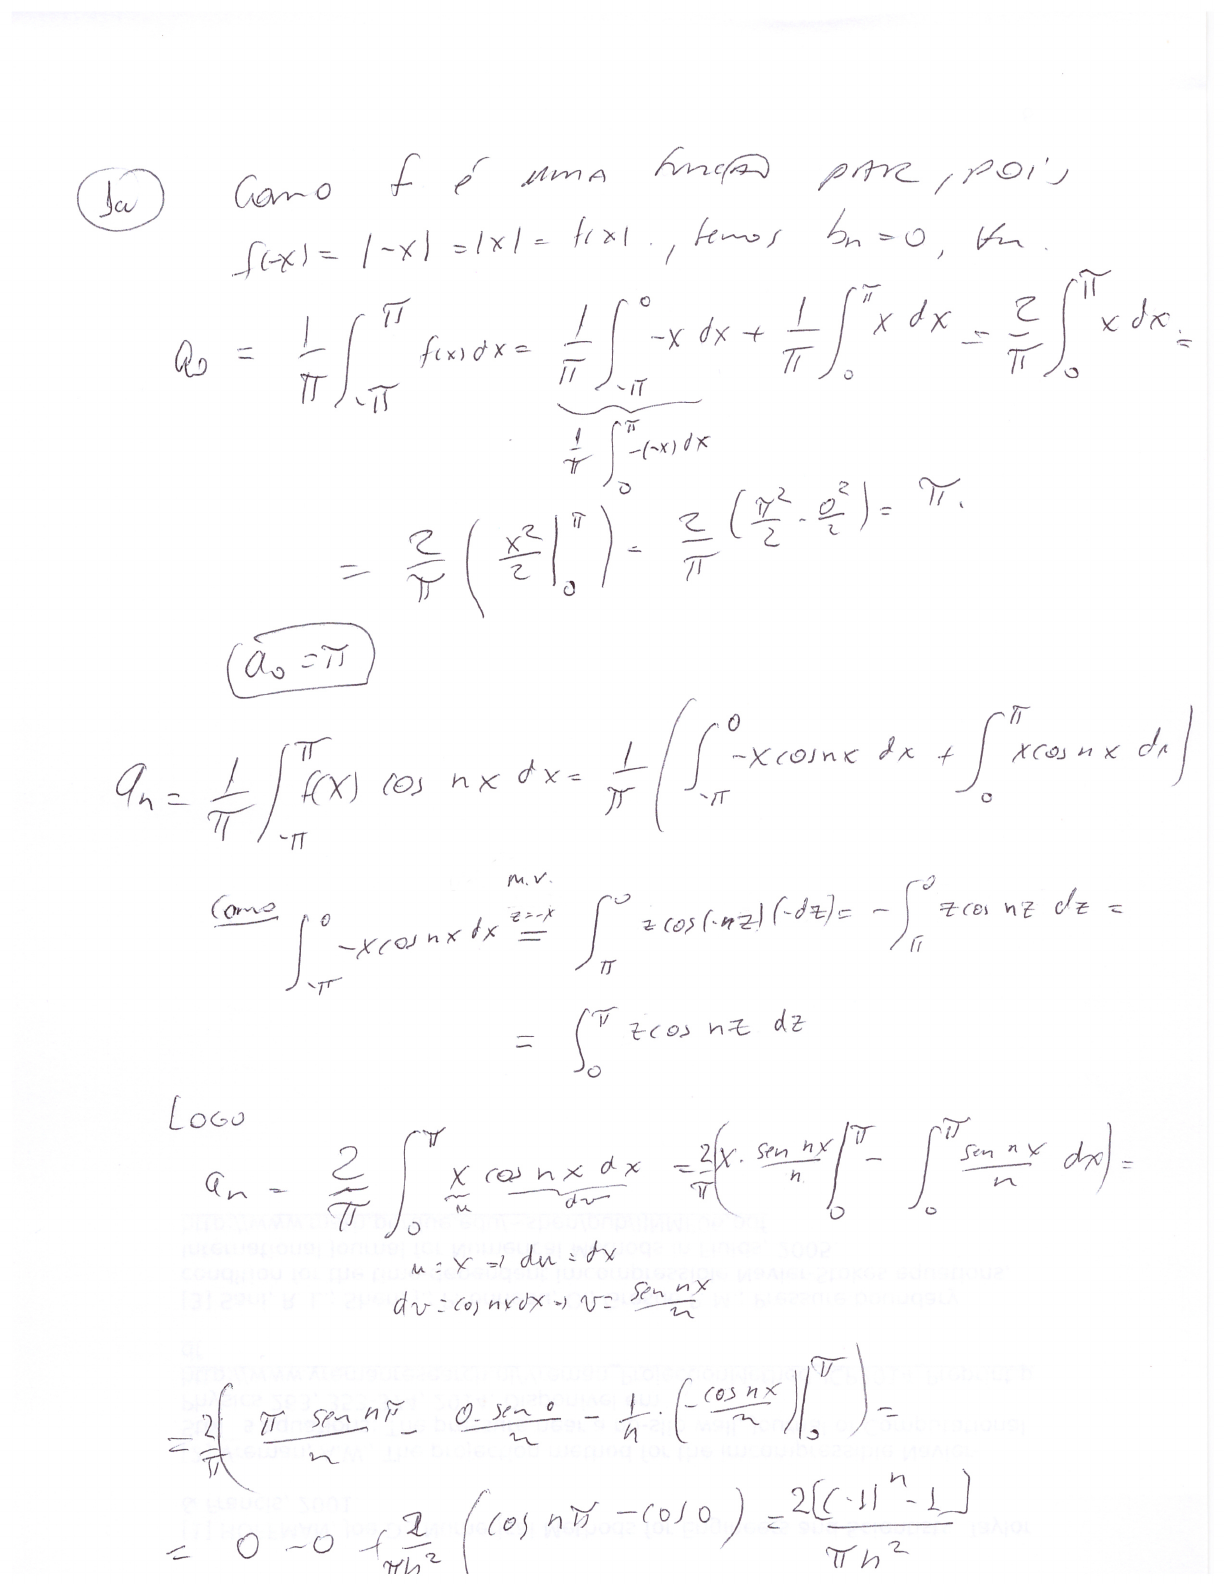 1a Como f é uma função PAR, pois
f(-x) = |-x| = |x| = f(x)., temos bn = 0, ∀n.
a₀ = 1/π ∫_{-π}^{π} f(x) dx = 1/π ∫_{-π}^{0} -x dx + 1/π ∫_{0}^{π} x dx = 2/π ∫_{0}^{π} x dx =
1/π ∫_{0}^{π} -(-x) dx
= 2/π ( x²/2 |_{0}^{π} ) = 2/π ( π²/2 - 0²/2 ) = π.
a₀ = π
an = 1/π ∫_{-π}^{π} f(x) cos nx dx = 1/π ( ∫_{-π}^{0} -x cos nx dx + ∫_{0}^{π} x cos nx dx )
Como ∫_{-π}^{0} -x cos nx dx = (m.v. z=-x) ∫_{π}^{0} z cos(-nz) (-dz) = - ∫_{π}^{0} z cos nz dz =
= ∫_{0}^{π} z cos nz dz
LOGO
an = 2/π ∫_{0}^{π} x cos nx dx = 2/π ( x. sen nx/n |_{0}^{π} - ∫_{0}^{π} sen nx/n dx ) =
u dv
u = x ⇒ du = dx
dv = cos nx dx ⇒ v = sen nx/n
= 2/π ( π sen nπ/n - 0. sen 0/n - 1/n ( - cos nx/n )|_{0}^{π} ) =
= 0 - 0 + 2/πn² ( cos nπ - cos 0 ) = 2[(-1)ⁿ - 1]/πn²